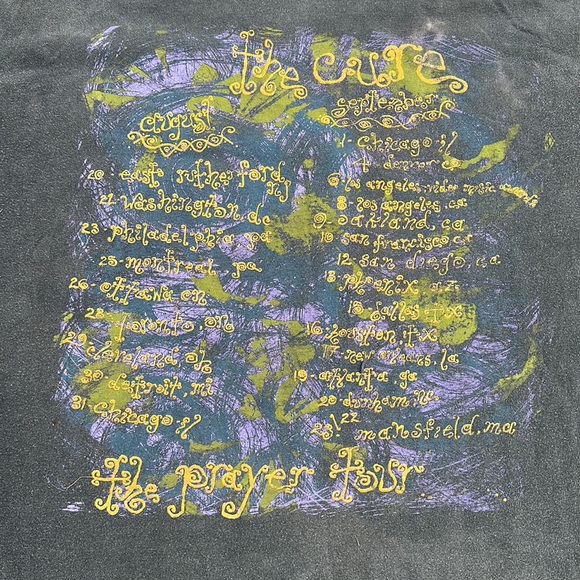 the cure
august
20 · east rutherford, nj
21 · washington, dc
23 · philadelphia pa
25 · montreal, pq
26 · ottawa on
28 · toronto on
29 · cleveland, oh
30 · detroit, mi
31 · chicago il
september
1 · chicago il
4 · denver
6 · los angeles, video music awards
8 · los angeles, ca
9 · oakland, ca
10 · san francisco ca
12 · san diego, ca
13 · phoenix az
15 · dallas tx
16 · houston, tx
17 · new orleans, la
19 · atlanta ga
20 · durham,
22
23 · mansfield, ma
the prayer tour